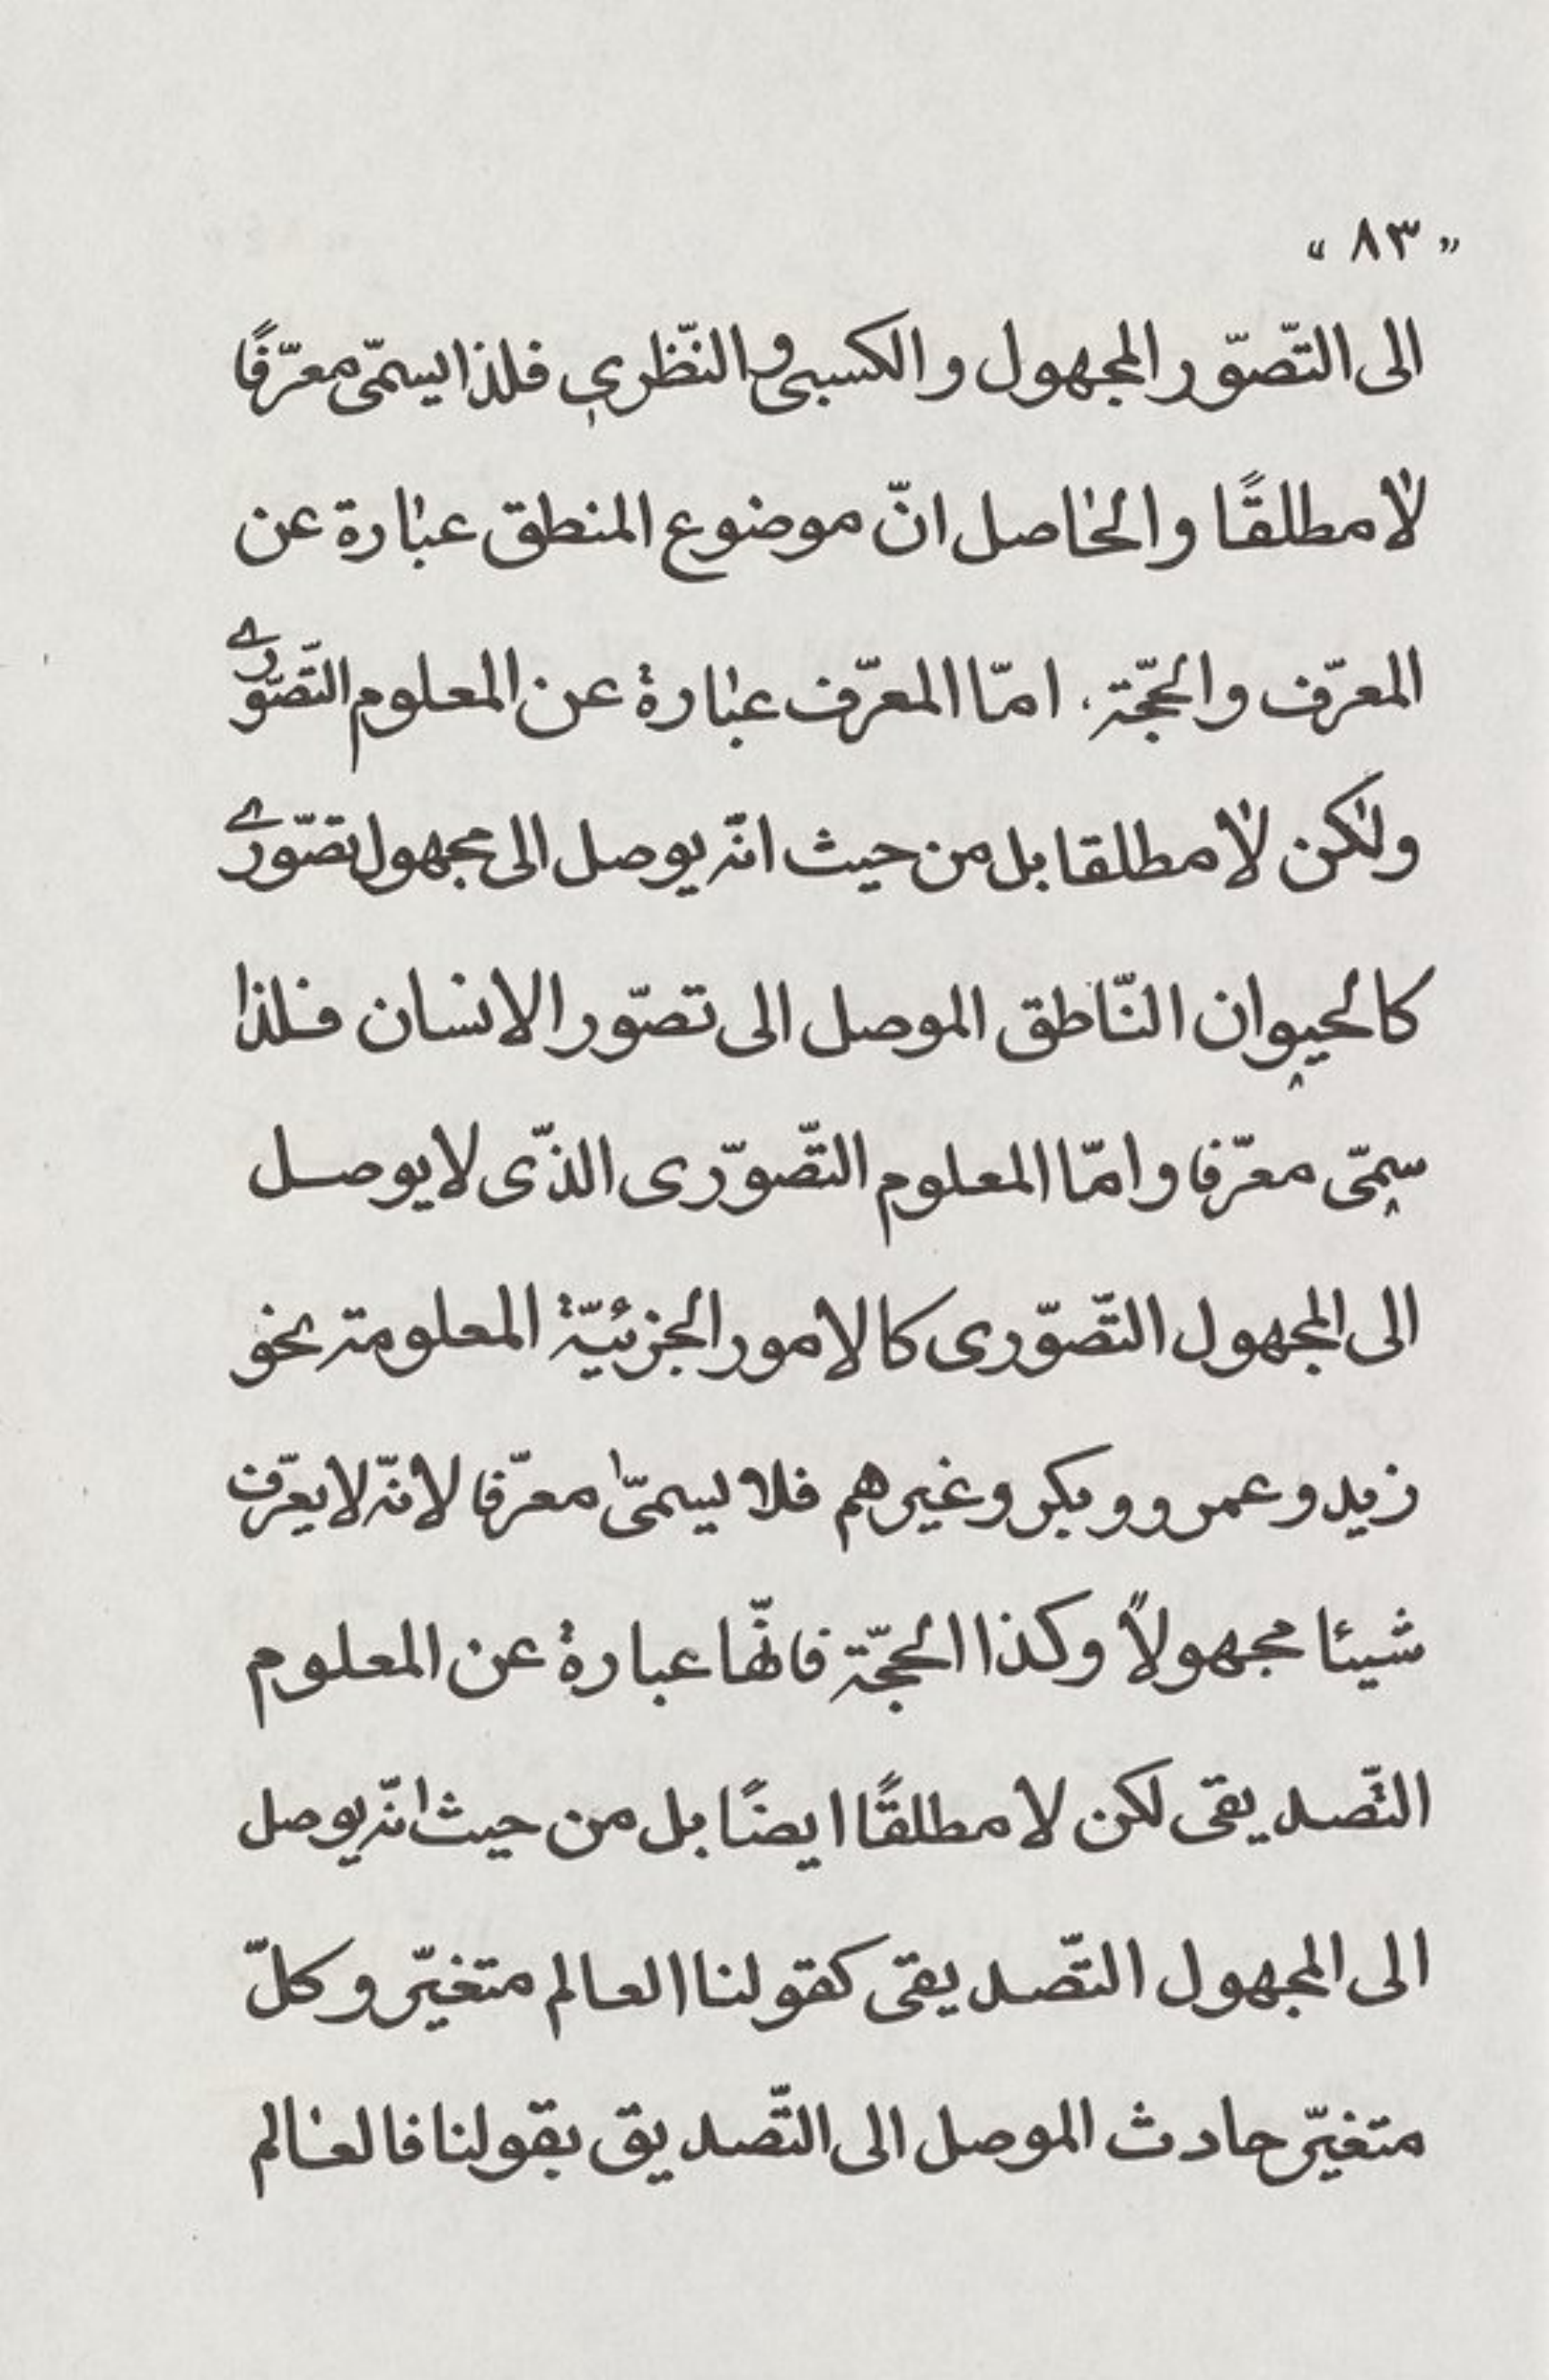 « ٨٣ »
الى التّصوّر المجهول و الكسبى و النّظرى فلذا يسمّى معرّفًا
لا مطلقًا و الحاصل انّ موضوع المنطق عبارة عن
المعرّف و الحجّة . امّا المعرّف عبارة عن المعلوم التّصوّرى
ولكن لا مطلقا بل من حيث انّه يوصل الى مجهول تصّورى
كالحيوان النّاطق الموصل الى تصوّر الانسان فلذا
سمّى معرّفا و امّا المعلوم التّصوّرى الذّى لا يوصل
الى المجهول التّصوّرى كالامور الجزئيّة المعلومة نحو
زيد و عمرو و بكر و غيرهم فلا يسمىّ معرّفا لانّه لا يعرّف
شيئا مجهولاً وكذا الحجّة فانّها عبارة عن المعلوم
التّصديقى لكن لا مطلقًا ايضًا بل من حيث انّه يوصل
الى المجهول التّصديقى كقولنا العالم متغيّر و كلّ
متغيّر حادث الموصل الى التّصديق بقولنا فالعالم